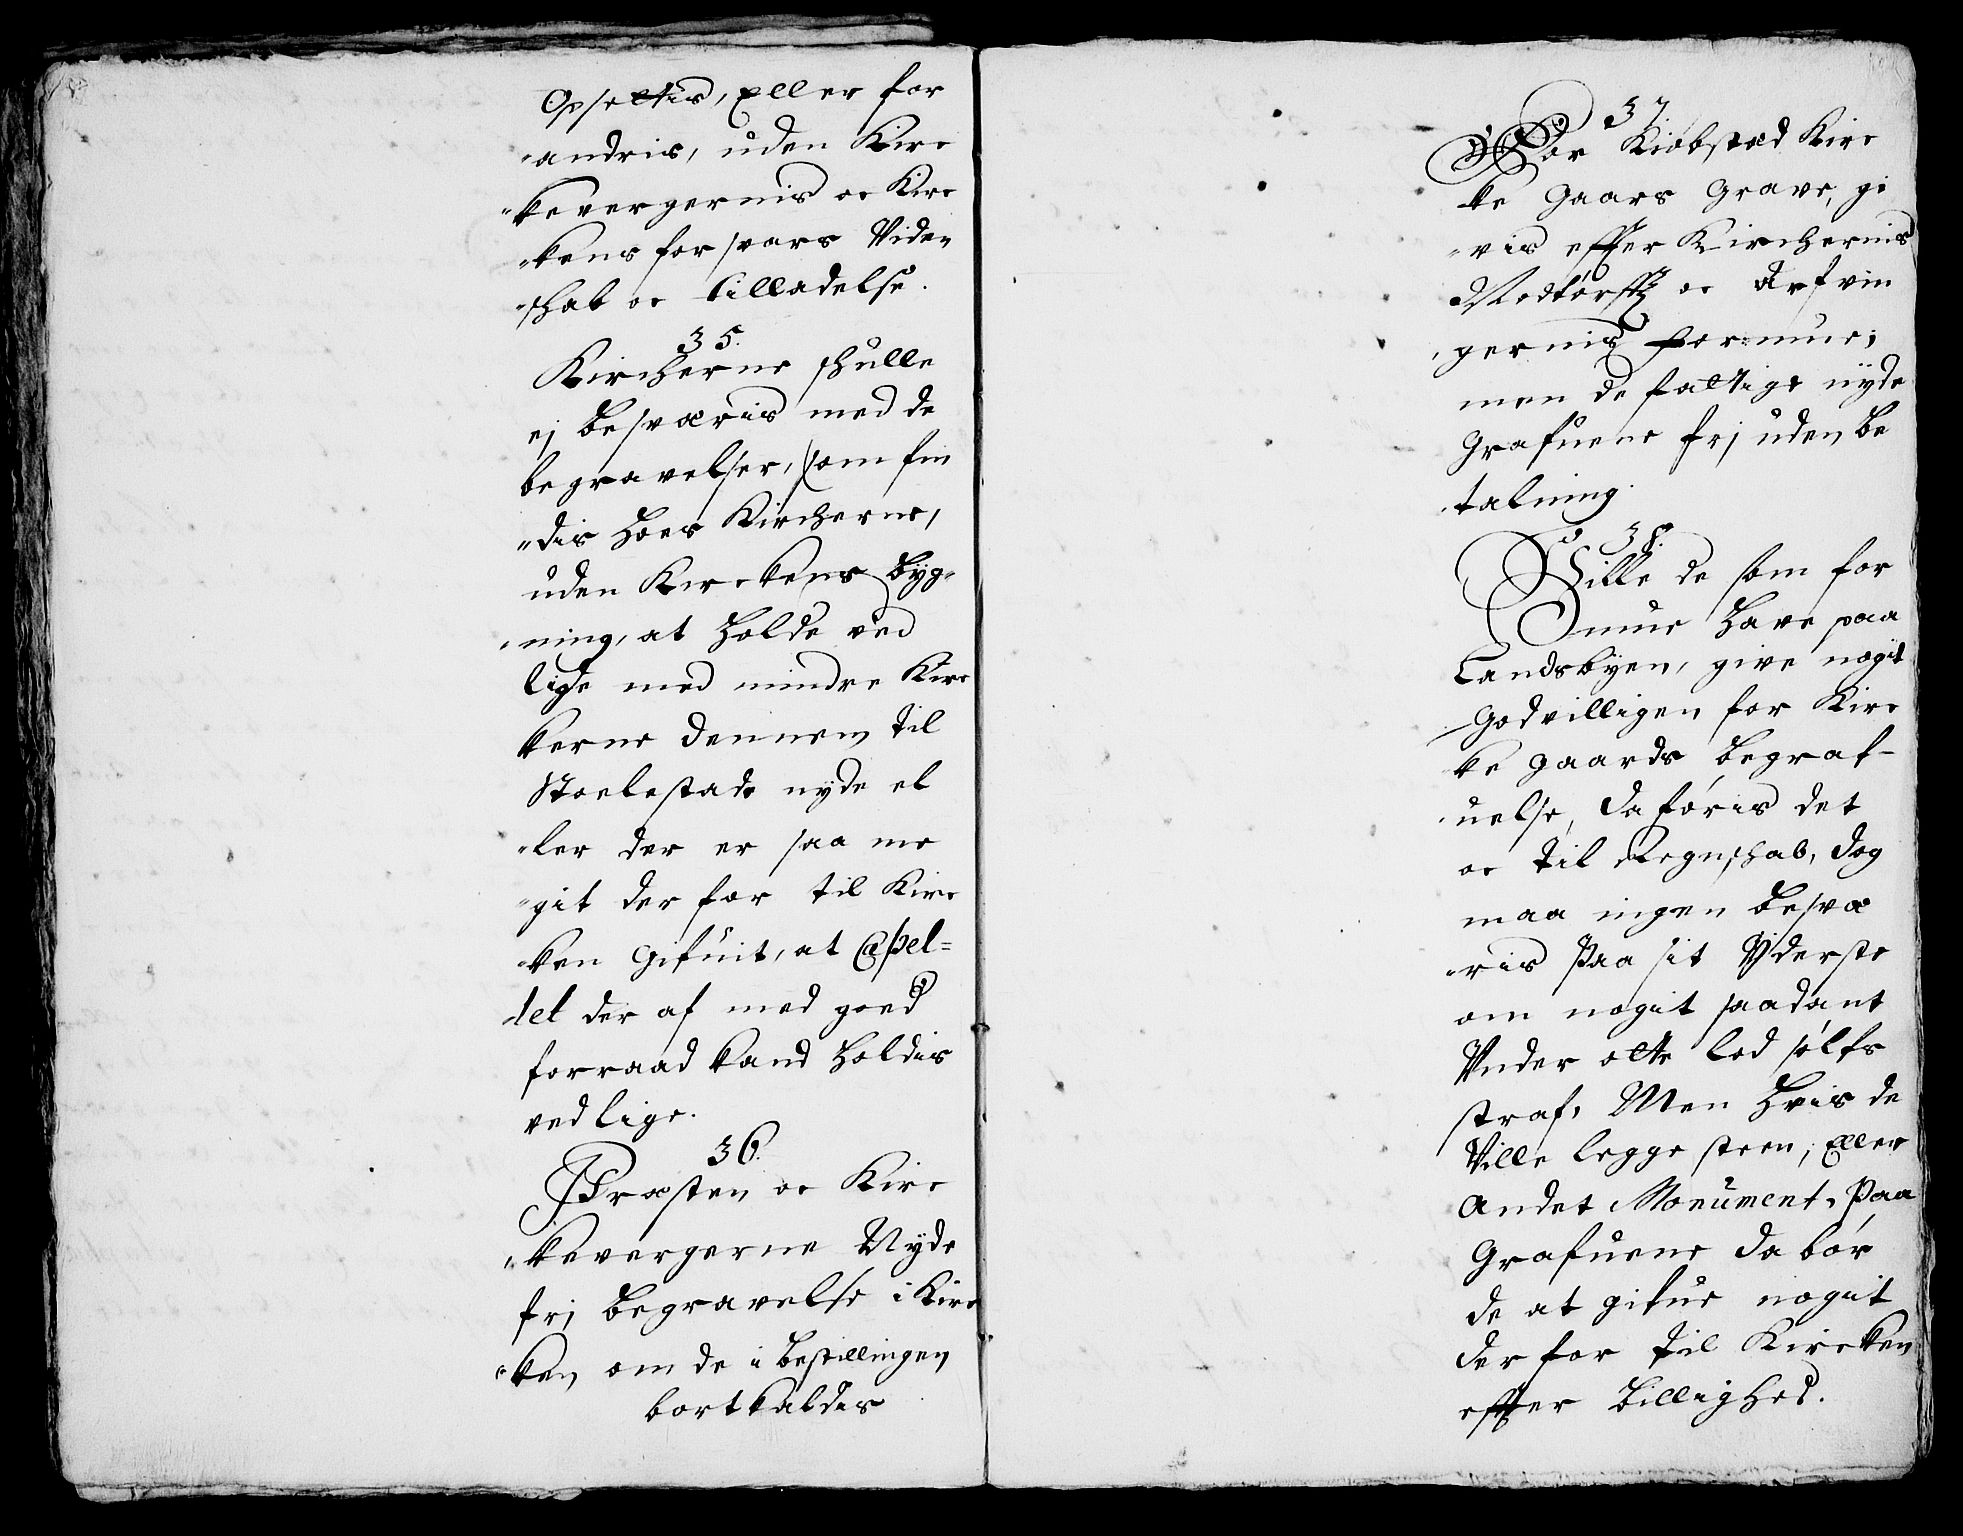 Opsettis, Eller for
andris, uden Kirc
kevergernis oc Kirc
kens forsvars Viden
skab oc tilladelse.
35.
Kircherne skulle
ej besværis med de
begravelser, som fin
dis hoes Kircherne,
uden Kirckens byg-
ning, at holde ved
lige med mindre Kirc
kerne dennem til
Stoelestade nyde el
ler der er saa me
git der for til Kirc
ken gifuit, at Capel=
let der af med goed
forraad kand holdis
ved lige.
36.
Præsten oc Kirc
kevergerne Nyde
frj begravelse i Kirc
ken om de i bestillingen
bortkaldis
37.
For Kiøbstæd Kirc
ke gaars grave, gi
vis effter Kirchernis
Nødtørfft oc Arfvin
gernis formue;
men de fattige nyde
grafuene frj uden be
talning.
38.
Ville de som for
mue have paa
Landsbyen, give nogit
godvilligen for Kirc
ke gaards begraf-
uelse, da føris det
oc til Regnskab, dog
maa ingen besvæ
ris paa sit Yderste
om nogit saadant
Vnder otte lod sølfs
straf, Men hvis de
Ville legge steen, Eller
andet Monument, paa
grafuene da bør
de at gifue nogit
der for til Kircken
effter billighed.